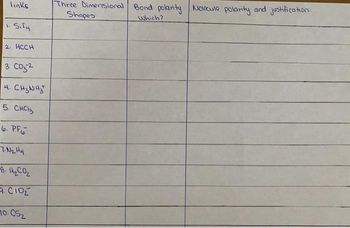 links Three Dimensional Shapes Bond polarity which? Molecule polarity and justification
1. SiF4
2. HCCH
3. CO3-2
4. CH3NH3+
5. CHCl3
6. PF6-
7. N2H4
8. H2CO2
9. ClO2-
10. CS2